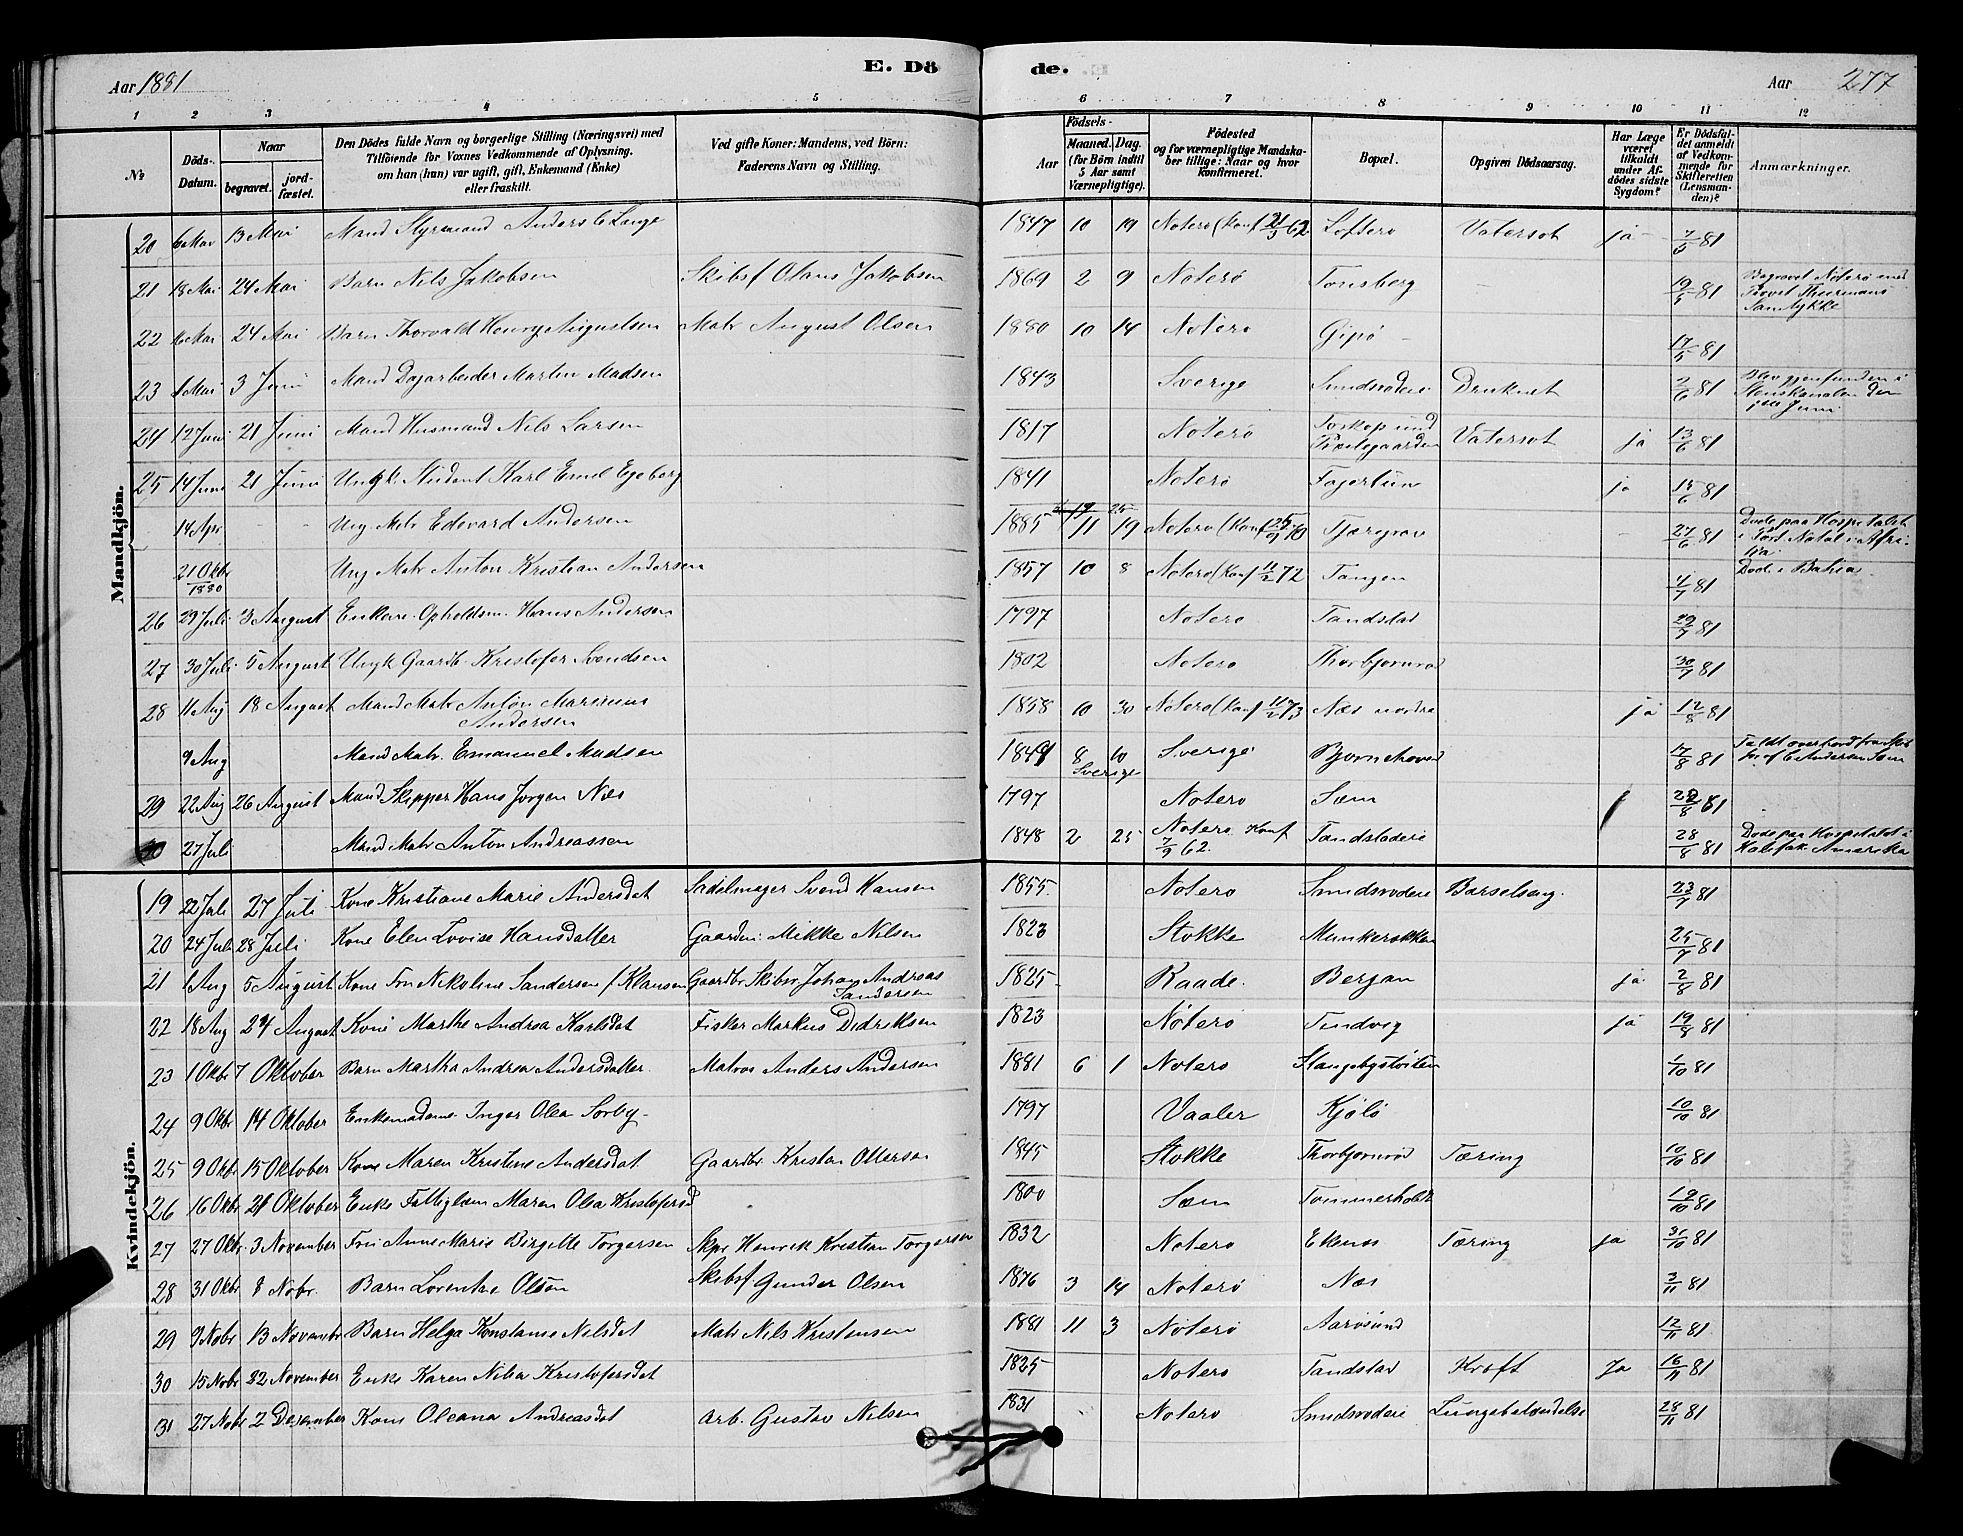 Aar 1881 E. Döde. Aar 277
1 2 3 4 5 6 7 8 9 10 11 12
№ Döds-Datum. Naar begravet. jordfæstet. Den Dödes fulde Navn og borgerlige Stilling (Næringsvei) med Tilföiende for Voxnes Vedkommende af Oplysning, om han (hun) var ugift, gift, Enkemand (Enke) eller fraskilt. Ved gifte Koner: Mandens, ved Börn: Faderens Navn og Stilling. Aar Födsels- Maaned. Dag. (for Börn indtil 5 Aar samt Værnepligtige). Födested og for værnepligtige Mandskaber tillige: Naar og hvor konfirmeret. Bopæl. Opgiven Dödsaarsag. Har Læge været tilkaldt under Afdödes sidste Sygdom? Er Dödsfaldet anmeldt af Vedkommende for Skifteretten (Lensmanden)? Anmærkninger.
Mandkjön.
20 6 Mai 13 Mai Mand Styrmand Anders C Lange 1847 10 19 Noterø (Konf 62 Vatersot ja 7/5 81
21 18 Mai 24 Mai Barn Nils Jakobsen Skibsf Olaus Jakobsen 1869 2 9 Noterø Tonsberg – 19/5 81 Begravet Noterø med Samtykke
22 16 Mai 24 Mai Barn Thorvald Henry Augustsen Matr August Olsen 1880 10 14 Noterø Gipø – 17/5 81
23 1 Mai 3 Juni Mand Dagarbeider Martin Madsen 1843 Sverige Smidsrødeie Druknet 2/6 81 Blev gjenfunden i Stenskanalen den Juni
24 12 Juni 21 Juni Mand Husmand Nils Larsen 1817 Noterø Vatersot ja 13/6 81
25 14 Juni 21 Juni Ungk. Student Karl Emil Egeberg 1841 Noterø Fagertun ja 15/6 81
14 Apr – – Ung Matr Edevard Andersen 1885 11 19 Noterø (Konf 70 Tjæregrav – 27/6 81 Døde paa Hospitalet i Port Natal i Afrika
21 Oktbr 1880 Ung Matr Anton Kristian Andersen 1857 10 8 Noterø (Konf 72 Tangen 4/7 81 Døde i Bahia
26 29 Juli 3 August Enkem. Opholdsm. Hans Andersen 1797 Noterø Tandstad 29/7 81
27 30 Juli 5 August Ungk Gaardb. Kristofer Svendsen 1802 Noterø Thorbjørnrød 30/7 81
28 11 Aug 18 August Mand Matr Anton Marinius Andersen 1858 10 30 Noterø (Konf 73 Næs nordre ja 12/8 81
9 Aug Mand Matr. Emanuel Madsen 1849 8 10 Sverige Sverige Bjørnehoved 17/8 81 Faldt overbord fra Skib
29 22 Aug 26 August Mand Skipper Hans Jørgen Næs 1797 Noterø Sem 22/8 81
27 Juli Mand Matr Anton Andreassen 1848 2 25 Noterø Konf 7/9 62. Tandstadeie 28/8 81 Døde paa Hospitalet i Halifak Amerika
Kvindekjön.
19 22 Juli 27 Juli Kone Kristiane Marie Andersdat Sadelmager Svend Hansen 1855 Noterø Smidsrødeie Barselseng. 23/7 81
20 24 Juli 28 Juli Kone Elen Lovise Hansdatter Gaardm. Mikke Nilsen 1823 Stokke Munkerekken 25/7 81
21 1 Aug 5 August Kone Fru Nikoline Sandersen f Klausen Gaardbr Skibsr Johan Andreas Sandersen 1825 Raade. Bergan ja 2/8 81
22 18 Aug 24 August Kone Marthe Andrea Karlsdat Fisker Markus Didriksen 1823 Nøterø Tendvig ja 19/8 81
23 1 Oktbr 7 Oktober Barn Martha Andrea Andersdatter Matros Anders Andersen 1881 6 1 Noterø 1/10 81
24 9 Oktbr 14 Oktober Enkemadame Inger Olea Sørby 1797 Vaaler Kjølø 10/10 81
25 9 Oktbr 15 Oktober Kone Maren Kristine Andersdat Gaardbr. Kristen Ottersen 1845 Stokke Thorbjørnrød Tæring 10/10 81
26 16 Oktbr 21 Oktober Enke Fattiglem Maren Olea Kristofersd 1800 Sem Tømmerholt 19/10 81
27 27 Oktbr. 3 November Fru Anne Marie Birgitte Torgersen Skpr Henrik Kristian Torgersen 1832 Noterø Ekenes Tæring ja 31/10 81
28 31 Oktbr 8 Novbr. Barn Lorentze Olsen Skibsf Gunder Olsen 1876 3 14 Noterø Næs 3/11 81
29 9 Novbr 13 Novembr Barn Helga Konstanse Nilsdat Matr Nils Kristensen 1881 11 3 Nøterø Aarøsund 12/11 81
30 15 Novbr 22 November Enke Karen Nilia Kristofersdat 1825 Noterø Tandstad Kræft Ja 16/11 81
31 27 Novbr 2 Desember Kone Oleana Andreasdat Arb. Gustav Nilsen 1831 Noterø Smidsrødeie Lungebetændelse 28/11 81